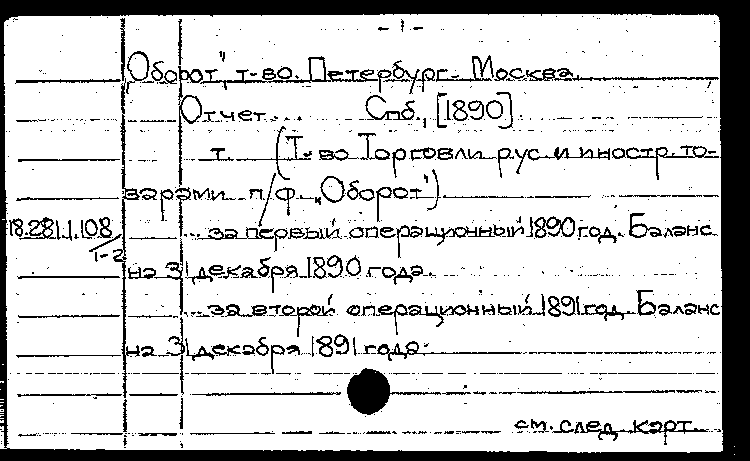 - 1 -
„Оборот", т-во. Петербург - Москва.
Отчет... Спб., [1890].
т. (Т-во Торговли рус. и иностр. то-
варами п/ф. „Оборот").
18.281.1.108 ... за первый операционный 1890 год. Баланс
1-2 на 31 декабря 1890 года.
... за второй операционный 1891 год. Баланс
на 31 декабря 1891 года.
см. след. карт.